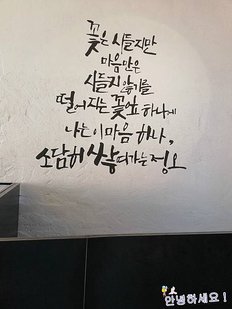 꽃은 시들지만
마음만은
시들지 않기를
떨어지는 꽃잎 하나에
나는 이 마음 하나,
소담히 쌓
다가는 정오
안녕하세요!